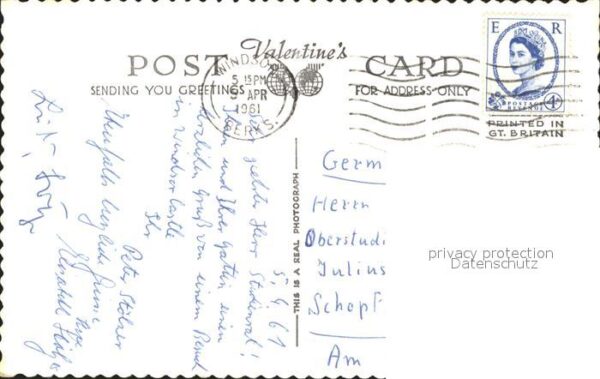 POST Valentine's CARD
SENDING YOU GREETINGS
FOR ADDRESS ONLY
WINDSOR
5 15 PM
5 APR
1961
BERKS.
E R
POSTAGE
REVENUE
4D
PRINTED IN
GT. BRITAIN
THIS IS A REAL PHOTOGRAPH
5.4.61
Sehr geehrter Herr Studienrat!
Ihnen und Ihrer Gattin einen
herzlichen Gruß von einem Besuch
in Windsor Castle
Ihr
Peter
Ebenfalls herzliche Grüsse
Germ
Herrn
Oberstudi
Julius
Schopf
Am
privacy protection
Datenschutz